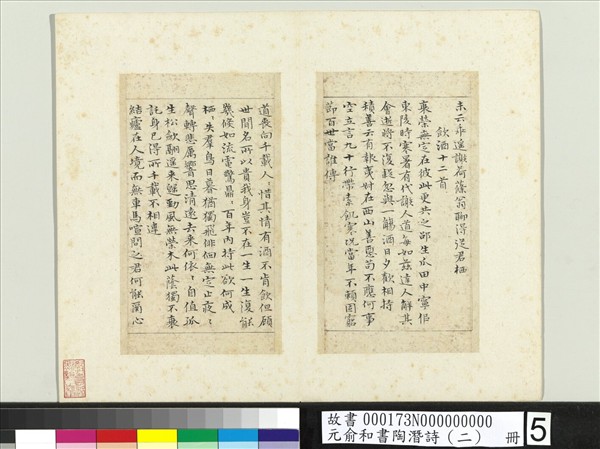 未云乖遙謝荷蓧翁聊得從君栖
飲酒十二首
衰榮無定在彼此更共之邵生瓜田中寧似
東陵時寒暑有代謝人道每如茲達人解其
會逝將不復疑忽與一觴酒日夕歡相持
積善云有報夷叔在西山善惡苟不應何事
空立言九十行帶索飢寒況當年不賴固窮
節百世當誰傳
道喪向千載人〻惜其情有酒不肯飲但顧
世間名所以貴我身豈不在一生一生復能
幾倏如流電驚鼎〻百年內持此欲何成
栖〻失群鳥日暮猶獨飛徘徊無定止夜〻
聲轉悲厲響思清遠去來何依〻自值孤
生松斂翮遙來歸勁風無榮木此蔭獨不衰
託身已得所千載不相違
結廬在人境而無車馬喧問之君何能爾心
故書 000173N000000000
元俞和書陶潛詩(二) 冊
5